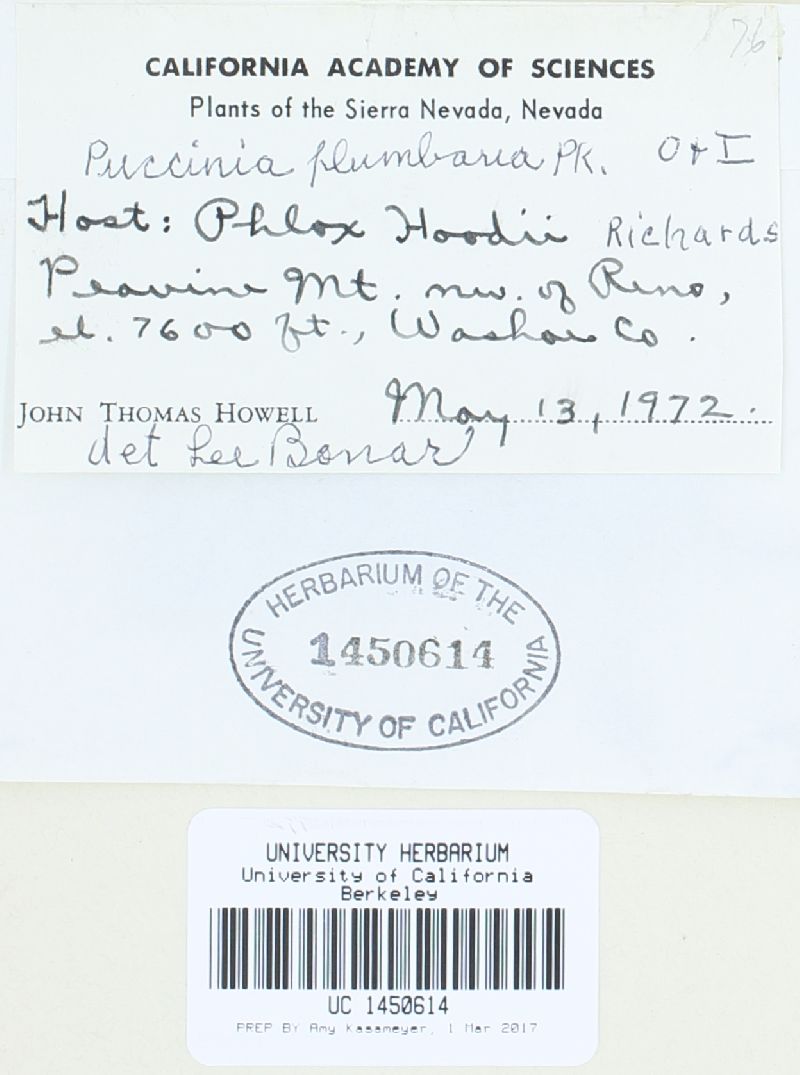 76
CALIFORNIA ACADEMY OF SCIENCES
Plants of the Sierra Nevada, Nevada
Puccinia plumbaria PK. O + I
Host: Phlox Hoodii Richards
Peavine Mt. nw. of Reno,
el. 7600 ft., Washoe Co.
JOHN THOMAS HOWELL May 13, 1972.
det Lee Bonar
HERBARIUM OF THE
1450614
UNIVERSITY OF CALIFORNIA
UNIVERSITY HERBARIUM
University of California
Berkeley
UC 1450614
PREP BY Amy Kasameyer, 1 Mar 2017